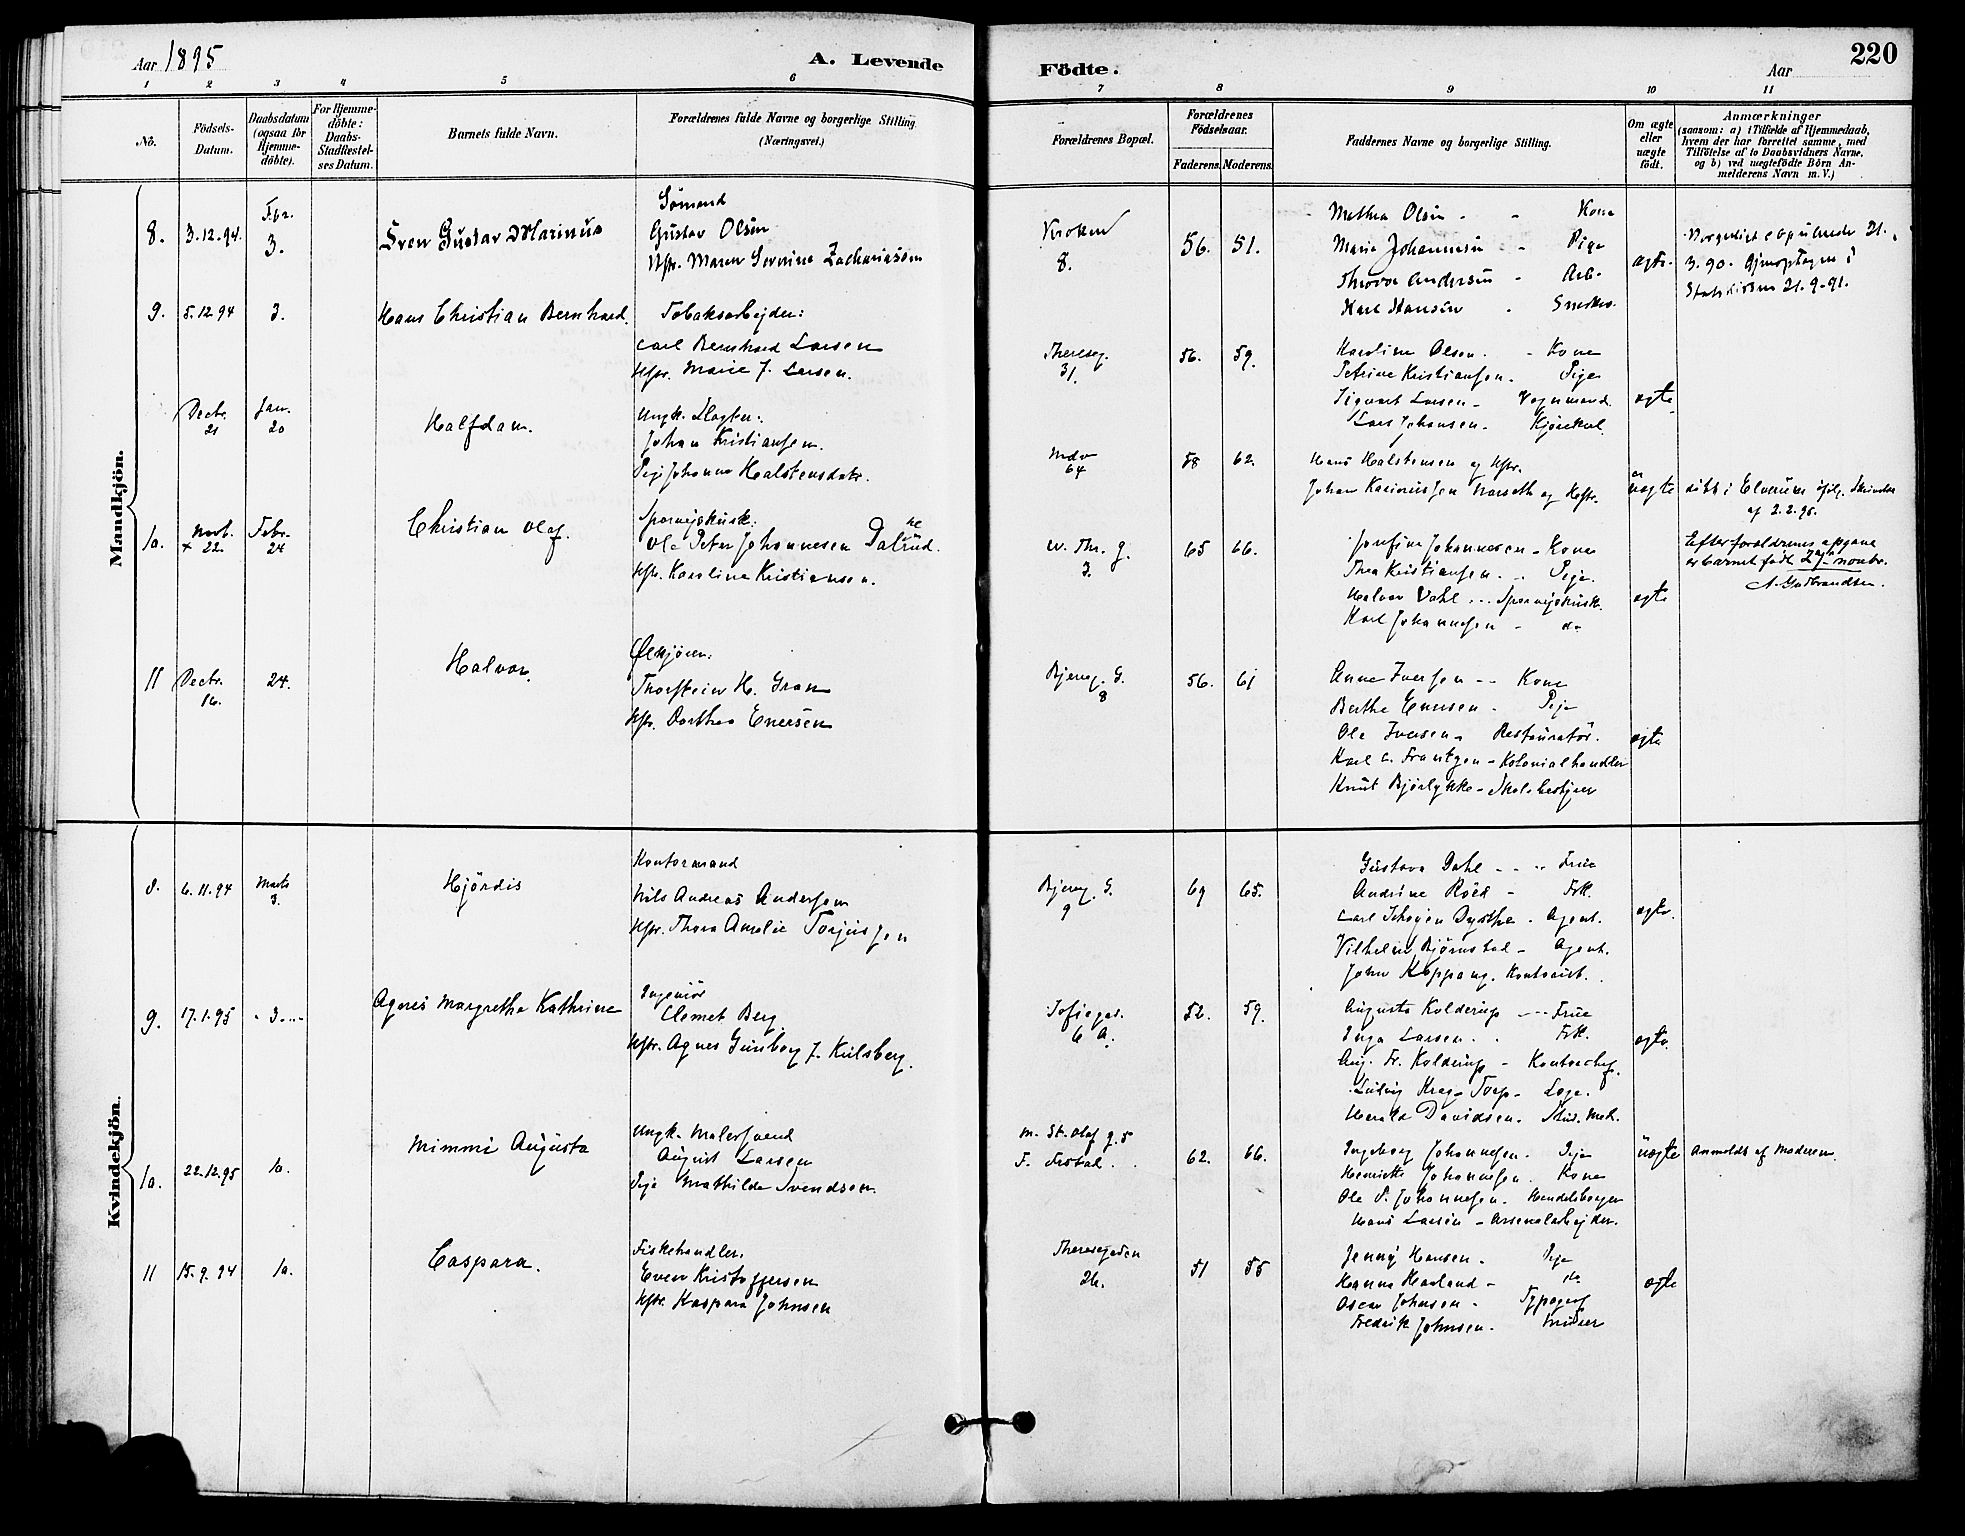 Aar 1895
A. Levende Födte.
Aar
220
1 2 3 4 5 6 7 8 9 10 11
No.
Födsels-Datum.
Daabsdatum (ogsaa för Hjemme-döbte).
For Hjemme-döbte: Daabs-Stadfæstel-ses Datum.
Barnets fulde Navn.
Forældrenes fulde Navne og borgerlige Stilling.
(Næringsvei.)
Forældrenes Bopæl.
Forældrenes Födselsaar.
Faderens. Moderens.
Faddernes Navne og borgerlige Stilling.
Om ægte eller uægte födt.
Anmærkninger
(saasom: a) i Tilfælde af Hjemmedaab,
hvem der har forrettet samme, med
Tilföielse af to Daabsvidners Navne,
og b) ved uægtefödte Börn An-
melderens Navn m. V.)
Mandkjön.
8. 3.12.94. Fbr. 3.
Sven Gustav Marinus
Sömand
Gustav Olsen
Hstr. Maren Severine Zachariasen
Kroken 8.
56. 51.
Mathea Olsen - Kone
Marie Johannesen - Pige
Thorva Andersen - Arb.
Karl Hansen - Snedker
ægte
3.90. Gjenoptagen i
Statskirken 21.9.91.
9. 5.12 94 3.
Hans Christian Bernhard.
Tobaksarbejder:
Carl Bernhard Larsen
Hstr. Marie J. Larsen.
Thereseg. 31.
56. 59.
Karoline Olsen. - Kone
Petrine Kristiansen. Pige
Sigvart Larsen - Vognmand.
Lars Johansen. Kjörekarl.
ægte
Decbr. 21 Jan. 20
Halfdan.
Ungk. Slagter:
Johan Kristiansen.
Pige Johanne Halstensdatr.
64
58 62.
Hans Halstensen og Hstr.
Johan Kasinussen Narseth og Hstr.
uægte
döbt i Elverum ifölg. Skrivelse
af 2.2.95.
10. Novb. 22. Febr. 24
Christian Olaf.
Sporvejskusk:
Ole Peter Johannesen Dalrud.
Hstr. Karoline Kristiansen.
W. Thr. g. 3.
65 66.
Josefine Johannesen - Kone
Thea Kristiansen. - Pige.
Halvor Dahl - Sporvejskusk.
Karl Johannesen - do
ægte
Efter forældrenes opgave
er barnet födt 27de novbr.
A. Gudbrandsen.
11 Decbr. 16. 24.
Halvor.
Ølkjörer:
Thorstein H. Gran
Hstr. Dorthea Enersen
Bjerreg. G. 8
56. 61
Anne Iversen - Kone
Berthe Enersen - Pige
Ole Iversen - Restauratör.
Karl C. Frantzen - Kolonialhandler
Knut Bjørlykke - Skolebestyrer
ægte
Kvindekjön.
8. 6.11.94 Marts 3.
Hjördis
Kontormand
Nils Andreas Andersen
Hstr. Thora Amalie Torjusen
Bjerreg. G. 9
69 65.
Gustava Dahl - Frue
Andrine Röed - Frk.
Carl Schöyen Dysthe - Agent.
Vilhelm Bjørnstad - Agent.
John Koppang. Kontorist.
ægte.
9. 17.1.95 - 3. -
Agnes Margrethe Kathrine
Ingeniör
Clemet Berg.
Hstr. Agnes Gunborg J. Kulsberg.
Sofiegad. 6 A.
52. 59.
Augusta Kolderup - Frue
Inga Larsen. Frk.
Aug. Fr. Kolderup - Kontorchef.
Ludvig Kreg-Torp - Læge.
Harald Davidsen. Stud. Med.
ægte.
10. 22.12.95 10.
Mimmi Augusta
Ungk. Malersvend
August Larsen
Pige Mathilde Svendsen.
M. St. Olaf g. 5
F. Fistad.
62. 66.
Ingeborg Johannesen. Pige
Henriette Johannesen. Kone
Ole P. Johannesen. Handelsborger
Hans Larsen - Arsenalarbejder.
uægte
Anmeldt af Moderen.
11 15.9.94 10.
Caspara.
Fiskehandler.
Even Kristoffersen
Hstr. Kaspara Johnsen
Theresegaden 26.
51 55
Jenny Hansen. Pige
Hanna Harland - do
Oscar Johnsen - Typograf
Fredrik Johnsen. Murer
ægte